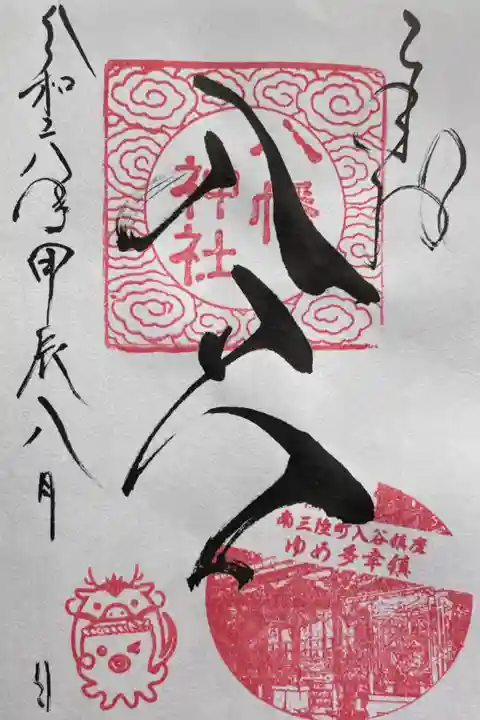 奉拝
八幡
神社
南三陸町入谷鎮座
ゆめ多幸鎮
令和六年甲辰八月 日